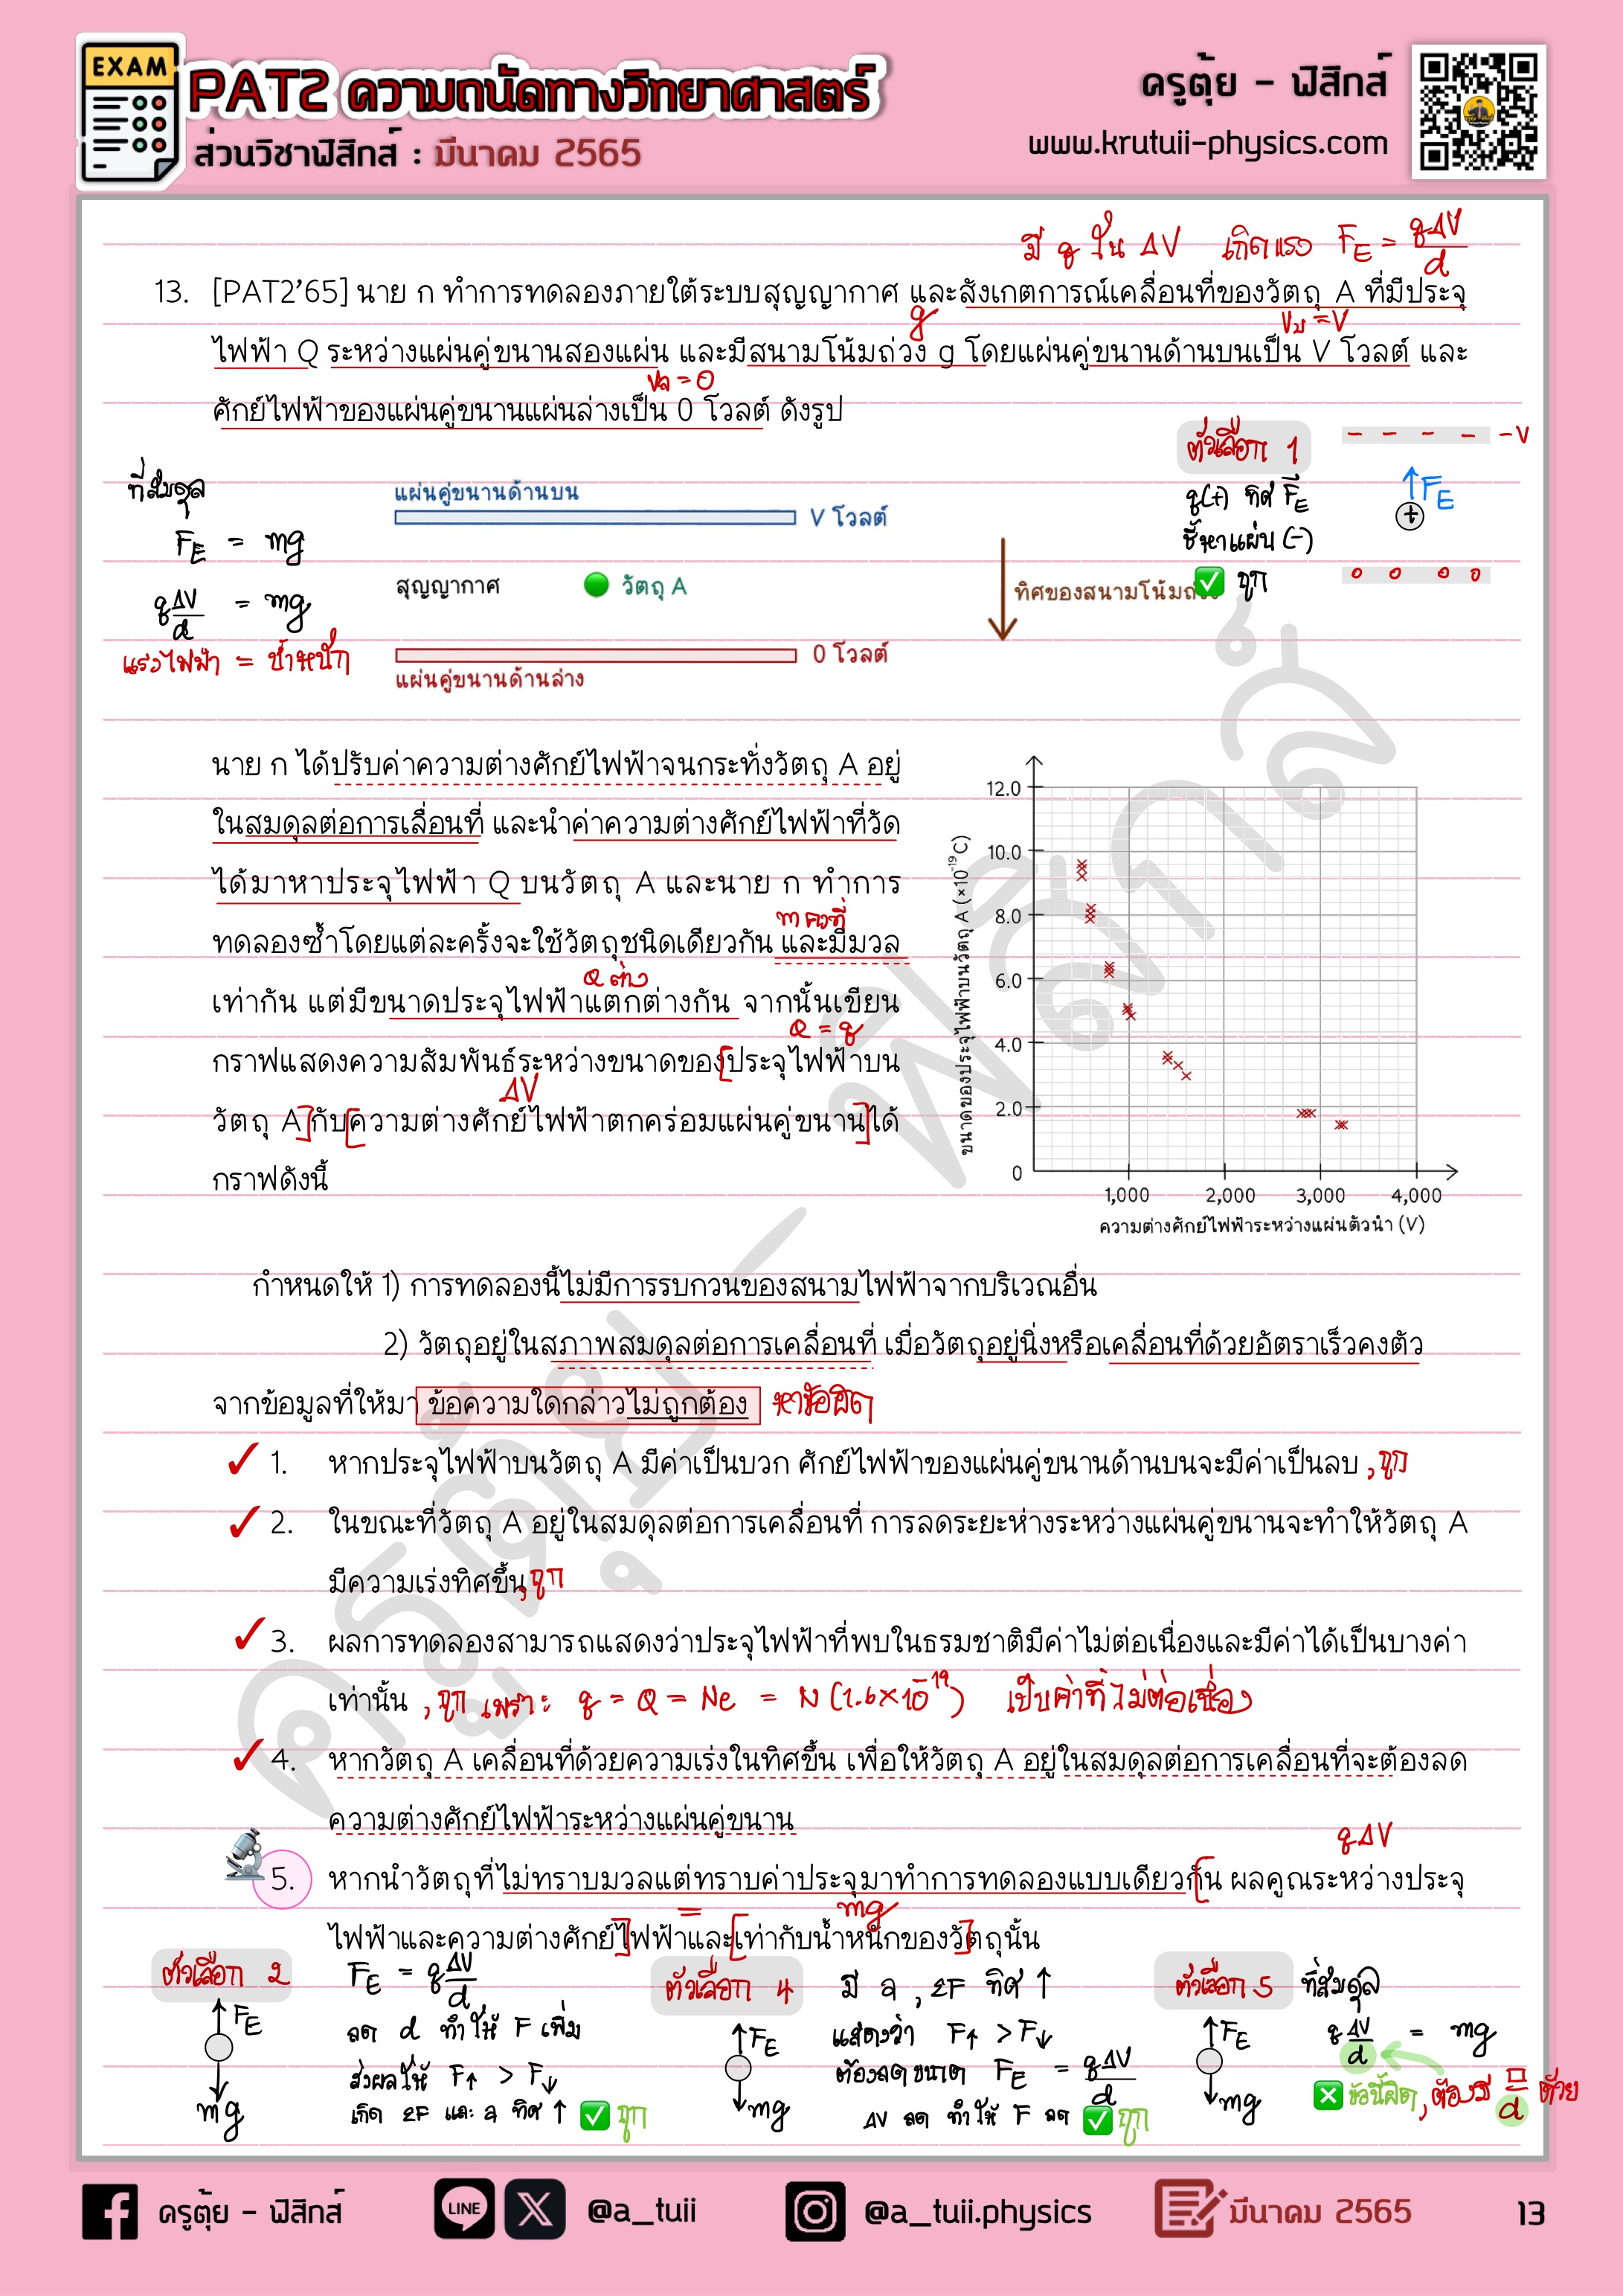 EXAM
PAT2 ความถนัดทางวิทยาศาสตร์
ส่วนวิชาฟิสิกส์ : มีนาคม 2565
ครูตุ้ย - ฟิสิกส์
www.krutuii-physics.com
มี q ใน ΔV เกิดแรง F_E = qΔV/d
13. [PAT2'65] นาย ก ทำการทดลองภายใต้ระบบสุญญากาศ และสังเกตการณ์เคลื่อนที่ของวัตถุ A ที่มีประจุ
g
Vบ = V
ไฟฟ้า Q ระหว่างแผ่นคู่ขนานสองแผ่น และมีสนามโน้มถ่วง g โดยแผ่นคู่ขนานด้านบนเป็น V โวลต์ และ
Vล = 0
ศักย์ไฟฟ้าของแผ่นคู่ขนานแผ่นล่างเป็น 0 โวลต์ ดังรูป
ที่สมดุล
F_E = mg
qΔV/d = mg
แรงไฟฟ้า = น้ำหนัก
แผ่นคู่ขนานด้านบน
V โวลต์
สุญญากาศ
วัตถุ A
0 โวลต์
แผ่นคู่ขนานด้านล่าง
ทิศของสนามโน้มถ่วง
ตัวเลือก 1
q(+) ทิศ F_E
ชี้หาแผ่น (-)
✅ ถูก
- - - - -V
↑F_E
+
0 0 0 0
นาย ก ได้ปรับค่าความต่างศักย์ไฟฟ้าจนกระทั่งวัตถุ A อยู่
ในสมดุลต่อการเลื่อนที่ และนำค่าความต่างศักย์ไฟฟ้าที่วัด
ได้มาหาประจุไฟฟ้า Q บนวัตถุ A และนาย ก ทำการ
m คงที่
ทดลองซ้ำโดยแต่ละครั้งจะใช้วัตถุชนิดเดียวกัน และมีมวล
Q ต่าง
เท่ากัน แต่มีขนาดประจุไฟฟ้าแตกต่างกัน จากนั้นเขียน
Q = q
กราฟแสดงความสัมพันธ์ระหว่างขนาดของ[ประจุไฟฟ้าบน
ΔV
วัตถุ A]กับ[ความต่างศักย์ไฟฟ้าตกคร่อมแผ่นคู่ขนาน]ได้
กราฟดังนี้
ขนาดของประจุไฟฟ้าบนวัตถุ A (×10⁻¹⁹C)
12.0
10.0
8.0
6.0
4.0
2.0
0
1,000 2,000 3,000 4,000
ความต่างศักย์ไฟฟ้าระหว่างแผ่นตัวนำ (V)
กำหนดให้ 1) การทดลองนี้ไม่มีการรบกวนของสนามไฟฟ้าจากบริเวณอื่น
2) วัตถุอยู่ในสภาพสมดุลต่อการเคลื่อนที่ เมื่อวัตถุอยู่นิ่งหรือเคลื่อนที่ด้วยอัตราเร็วคงตัว
จากข้อมูลที่ให้มา ข้อความใดกล่าวไม่ถูกต้อง หาข้อผิด
✓ 1. หากประจุไฟฟ้าบนวัตถุ A มีค่าเป็นบวก ศักย์ไฟฟ้าของแผ่นคู่ขนานด้านบนจะมีค่าเป็นลบ , ถูก
✓ 2. ในขณะที่วัตถุ A อยู่ในสมดุลต่อการเคลื่อนที่ การลดระยะห่างระหว่างแผ่นคู่ขนานจะทำให้วัตถุ A
มีความเร่งทิศขึ้น, ถูก
✓ 3. ผลการทดลองสามารถแสดงว่าประจุไฟฟ้าที่พบในธรมชาติมีค่าไม่ต่อเนื่องและมีค่าได้เป็นบางค่า
เท่านั้น , ถูก เพราะ q = Q = Ne = N (1.6×10⁻¹⁹) เป็นค่าที่ไม่ต่อเนื่อง
✓ 4. หากวัตถุ A เคลื่อนที่ด้วยความเร่งในทิศขึ้น เพื่อให้วัตถุ A อยู่ในสมดุลต่อการเคลื่อนที่จะต้องลด
ความต่างศักย์ไฟฟ้าระหว่างแผ่นคู่ขนาน
qΔV
5. หากนำวัตถุที่ไม่ทราบมวลแต่ทราบค่าประจุมาทำการทดลองแบบเดียวกัน ผลคูณระหว่างประจุ
= mg
ไฟฟ้าและความต่างศักย์ไฟฟ้าและเท่ากับน้ำหนักของวัตถุนั้น
ตัวเลือก 2
↑F_E
mg
F_E = qΔV/d
ลด d ทำให้ F เพิ่ม
ส่งผลให้ F↑ > F↓
เกิด ΣF และ a ทิศ ↑ ✅ ถูก
ตัวเลือก 4
↑F_E
mg
มี a , ΣF ทิศ ↑
แสดงว่า F↑ > F↓
ต้องลดขนาด F_E = qΔV/d
ΔV ลด ทำให้ F ลด ✅ ถูก
ตัวเลือก 5
↑F_E
mg
ที่สมดุล
qΔV/d = mg
❎ ข้อนี้ผิด, ต้องมี □/d ด้วย
ครูตุ้ย - ฟิสิกส์
ครูตุ้ย - ฟิสิกส์
LINE
@a_tuii
@a_tuii.physics
มีนาคม 2565
13